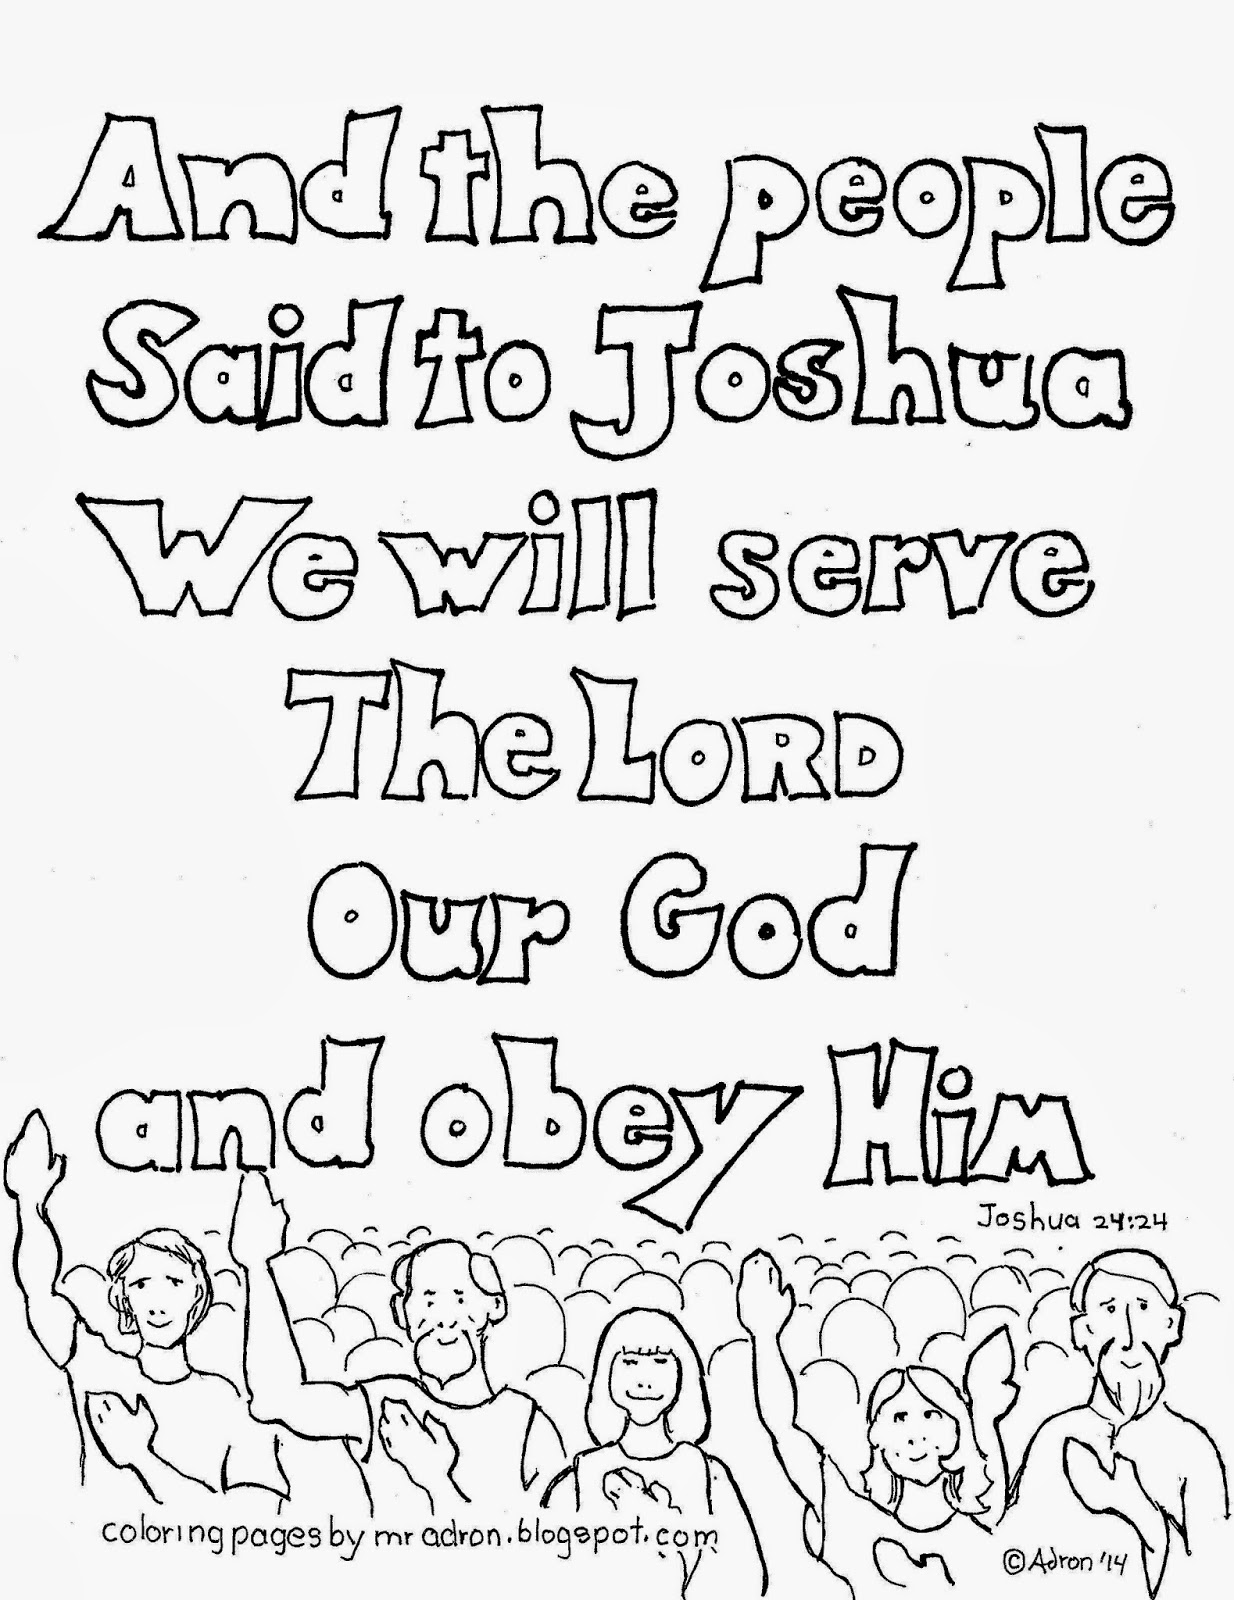 And the people
Said to Joshua
We will serve
The LORD
Our God
and obey Him
Joshua 24:24
coloring pages by mr adron.blogspot.com
© Adron '14